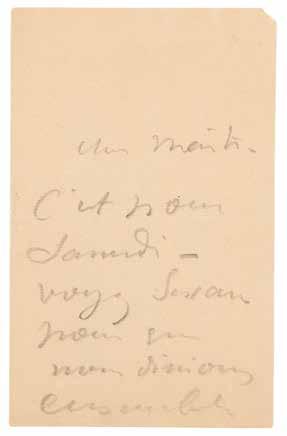 Cher Maître.
C'est pour
Samedi –
voyez
pour que
nous dinions
ensemble